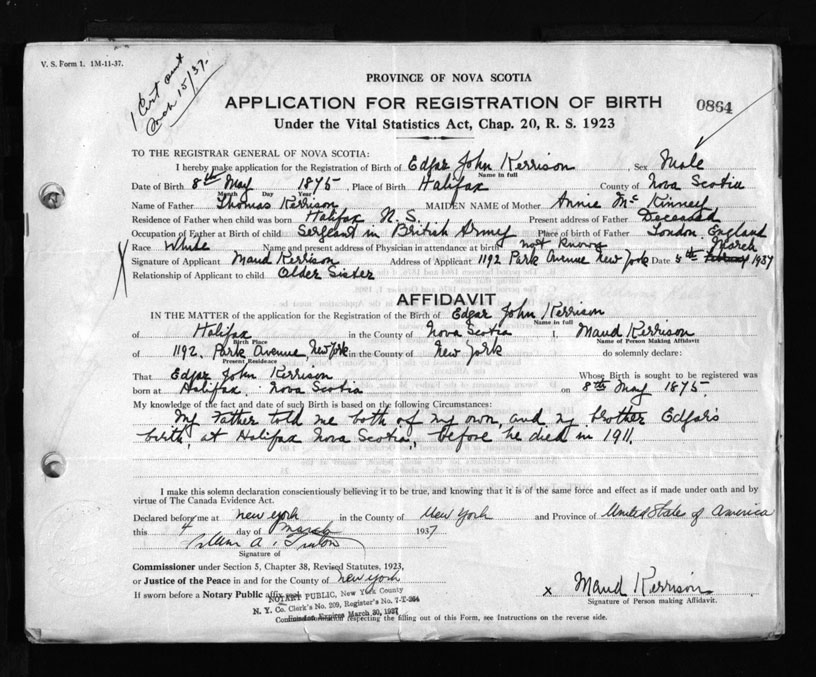 V. S. Form 1. 1M-11-37.
1 Cert sent
Mch 15/37.
PROVINCE OF NOVA SCOTIA
APPLICATION FOR REGISTRATION OF BIRTH
0864
Under the Vital Statistics Act, Chap. 20, R. S. 1923
TO THE REGISTRAR GENERAL OF NOVA SCOTIA:
I hereby make application for the Registration of Birth of Edgar John Kerrison, Sex Male
Name in full
Date of Birth 8th May 1875, Place of Birth Halifax County of Nova Scotia
Month Day Year
Name of Father Thomas Kerrison MAIDEN NAME of Mother Annie McKinney
Residence of Father when child was born Halifax N. S. Present address of Father Deceased
Occupation of Father at Birth of child Sergeant in British Army Place of birth of Father London England
Race White Name and present address of Physician in attendance at birth not known
March
Signature of Applicant Maud Kerrison Address of Applicant 1192 Park Avenue New York Date 4th February 1937
Relationship of Applicant to child Older Sister
X
AFFIDAVIT
IN THE MATTER of the application for the Registration of the Birth of Edgar John Kerrison
Name in full
of Halifax in the County of Nova Scotia I, Maud Kerrison
Birth Place Name of Person Making Affidavit
of 1192. Park Avenue, New York in the County of New York do solemnly declare:
Present Residence
That Edgar John Kerrison Whose Birth is sought to be registered was
born at Halifax, Nova Scotia on 8th May 1875.
My knowledge of the fact and date of such Birth is based on the following Circumstances:
My Father told me both of my own, and my brother Edgar's
birth, at Halifax Nova Scotia, before he died in 1911.
I make this solemn declaration conscientiously believing it to be true, and knowing that it is of the same force and effect as if made under oath and by
virtue of The Canada Evidence Act.
Declared before me at New York in the County of New York and Province of United States of America
this 4 day of March 1937
Signature of
Commissioner under Section 5, Chapter 38, Revised Statutes, 1923,
or Justice of the Peace in and for the County of New York
If sworn before a Notary Public affix seal.
NOTARY PUBLIC, New York County
N. Y. Co. Clerk's No. 209, Register's No. 7-T-264
Commission Expires March 30, 1937
respecting the filling out of this Form, see Instructions on the reverse side.
x Maud Kerrison
Signature of Person making Affidavit.